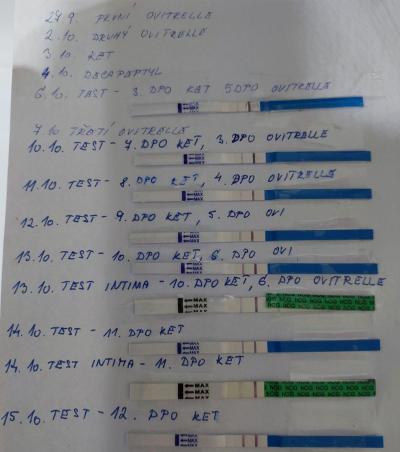 29.9. PRVNÍ OVITRELLE
2.10. DRUHÝ OVITRELLE
3.10. KET
4.10. DECAPEPTYL
6.10. TEST - 3. DPO KET 5DPO OVITRELLE
←MAX
7.10 TŘETÍ OVITRELLE
10.10. TEST - 7. DPO KET, 3. DPO OVITRELLE
←MAX
11.10. TEST - 8. DPO KET, 4. DPO OVITRELLE
←MAX
12.10. TEST - 9. DPO KET, 5. DPO OVI
←MAX
13.10. TEST - 10. DPO KET, 6. DPO OVI
←MAX
13.10. TEST INTIMA - 10. DPO KET, 6. DPO OVITRELLE
←MAX HCG HCG HCG HCG
14.10. TEST - 11. DPO KET
←MAX
14.10. TEST INTIMA - 11. DPO KET
←MAX HCG HCG HCG HCG
15.10. TEST - 12. DPO KET
←MAX